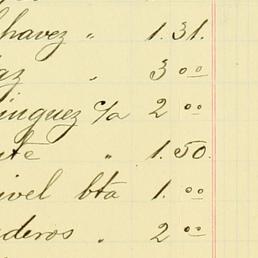 chavez " 1.31.
az " 3 00
inguez c/a 2 00
te " 1.50.
ivel bta 1. 00
deros " 2 00